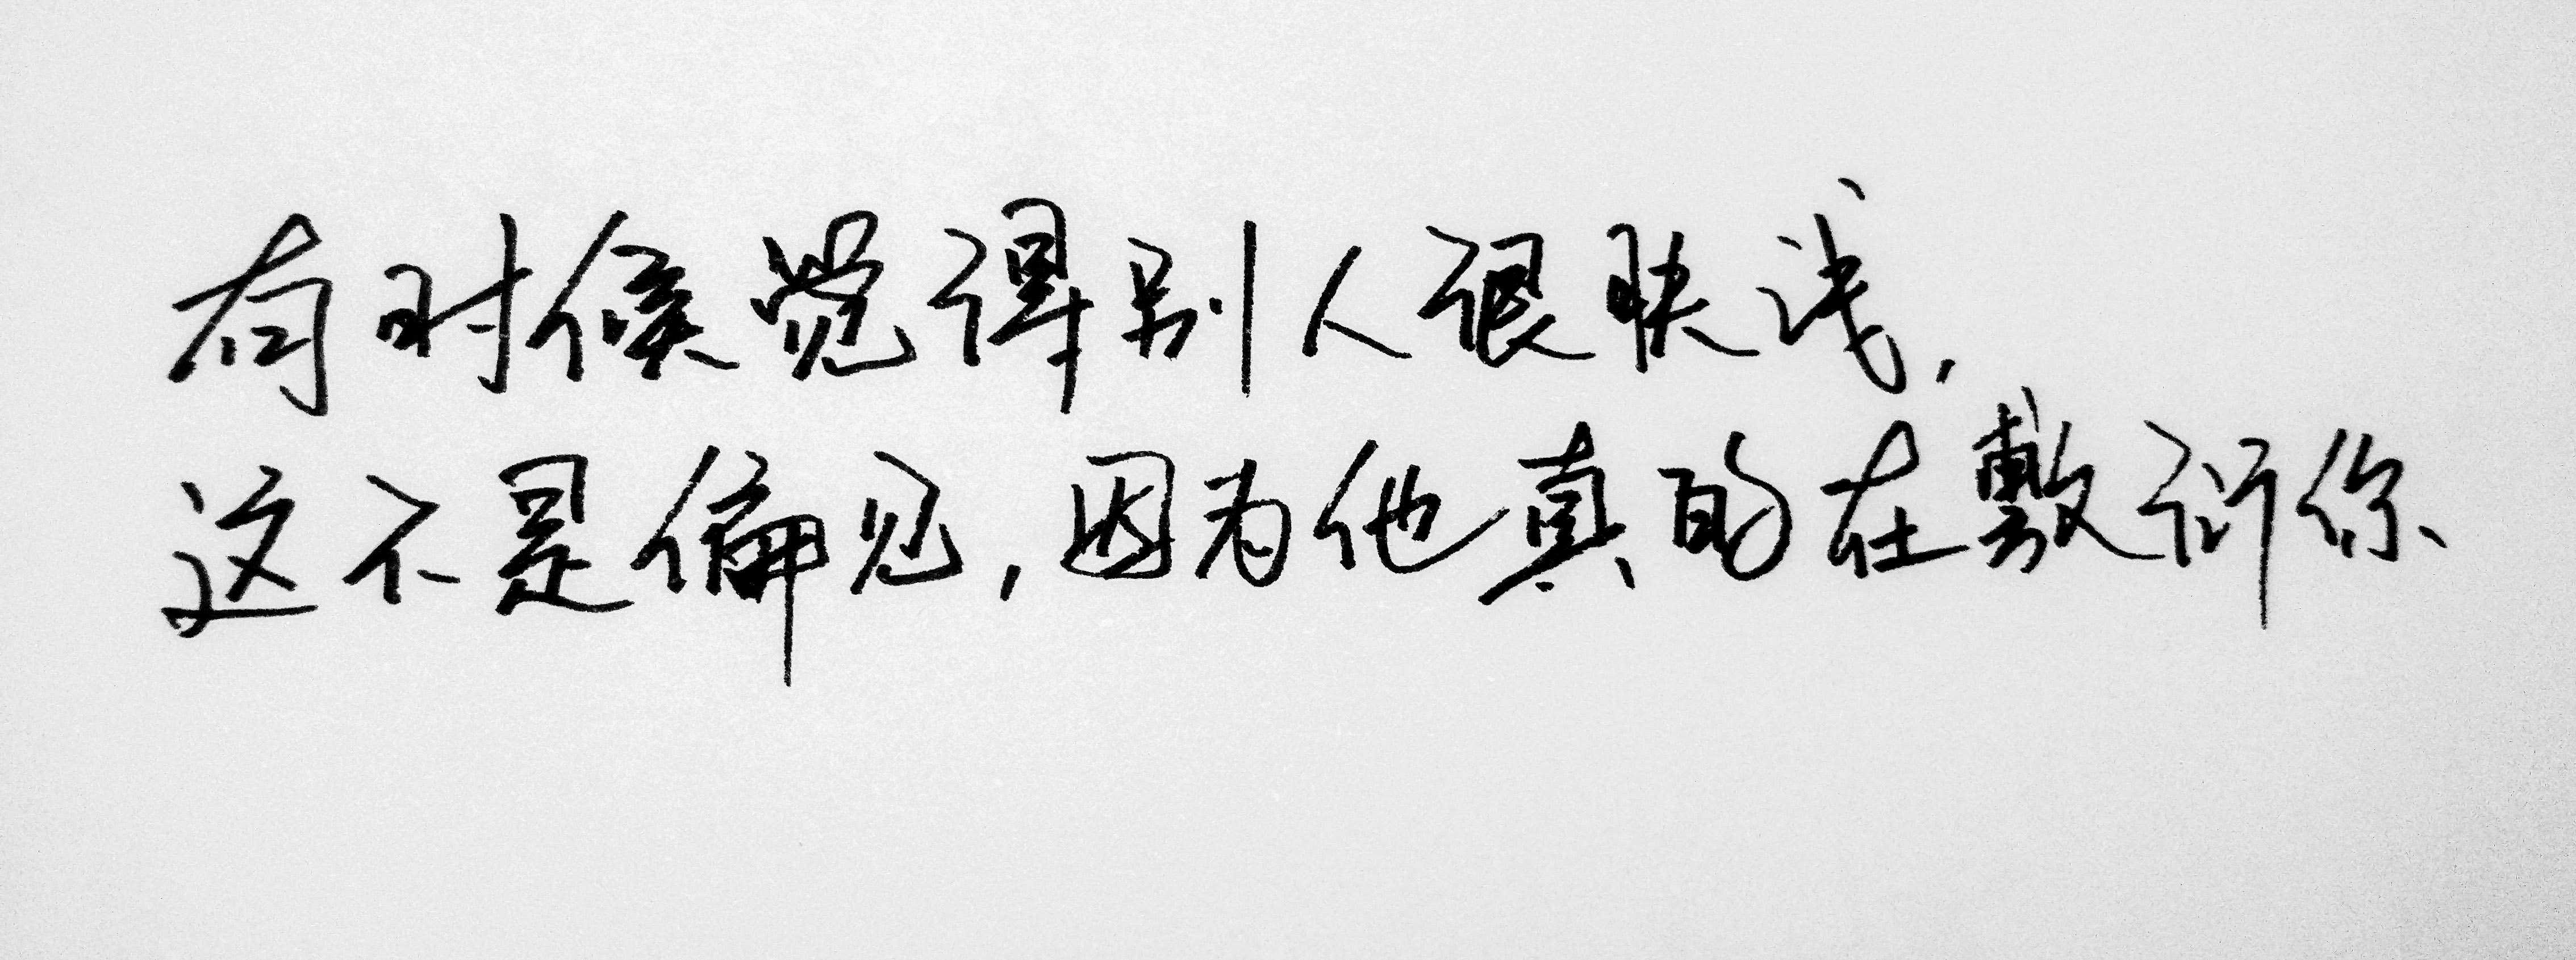 有时候觉得别人很肤浅，
这不是偏见，因为他真的在敷衍你